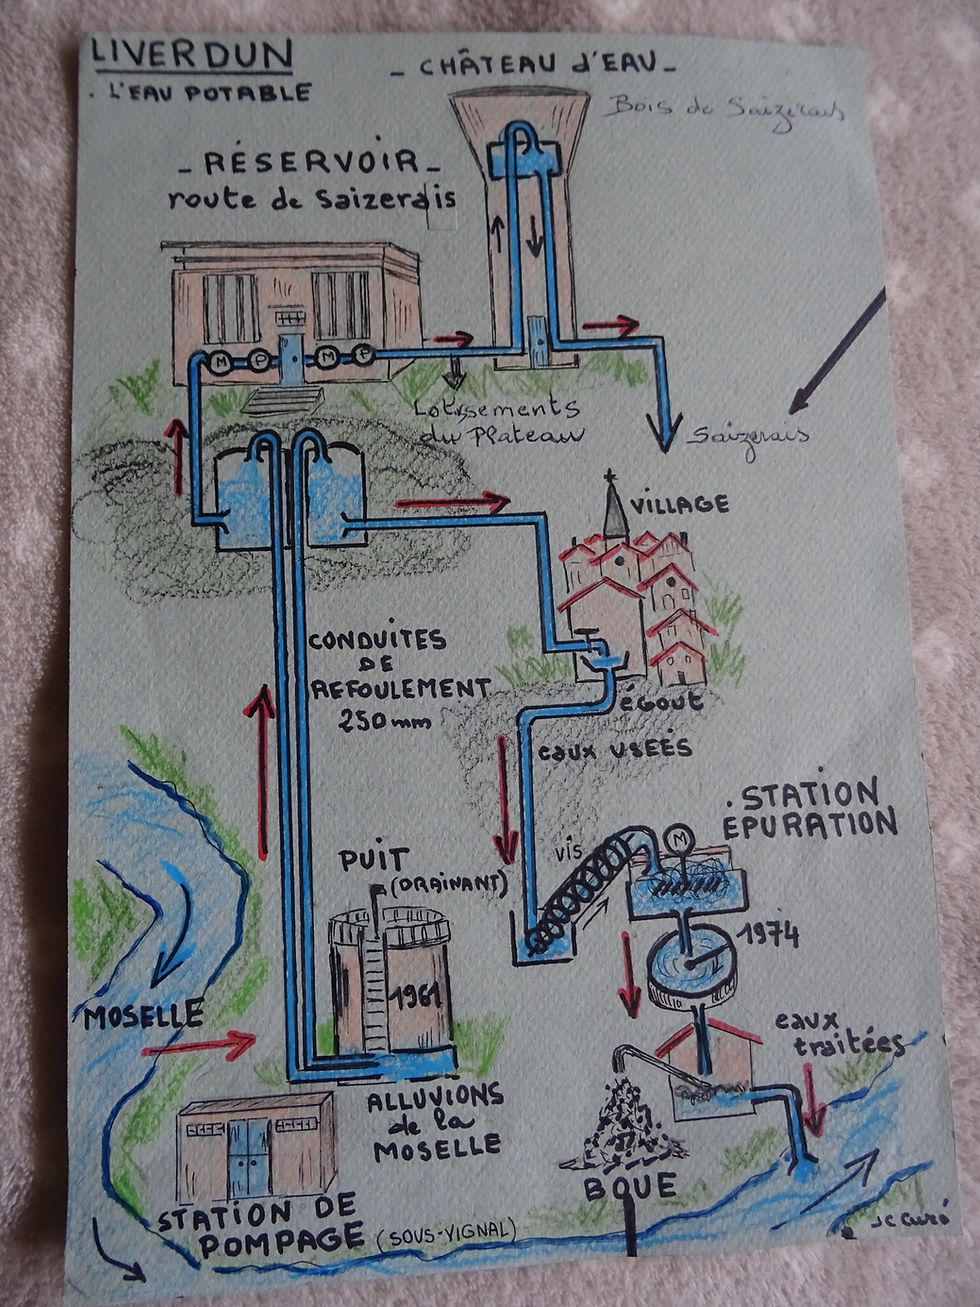 LIVERDUN
. L'EAU POTABLE
- CHÂTEAU d'EAU -
Bois de Saizerais
- RÉSERVOIR -
route de Saizerais
M P M P
Lotissements
du Plateau
Saizerais
VILLAGE
CONDUITES
DE
REFOULEMENT
250mm
ÉGOUT
eaux USEÉS
. STATION
ÉPURATION
vis
M
PUIT
(DRAINANT)
1974
1961
MOSELLE
eaux
traitées
ALLUVIONS
de la
MOSELLE
BOUE
STATION DE
POMPAGE (SOUS-VIGNAL)
JC Curé